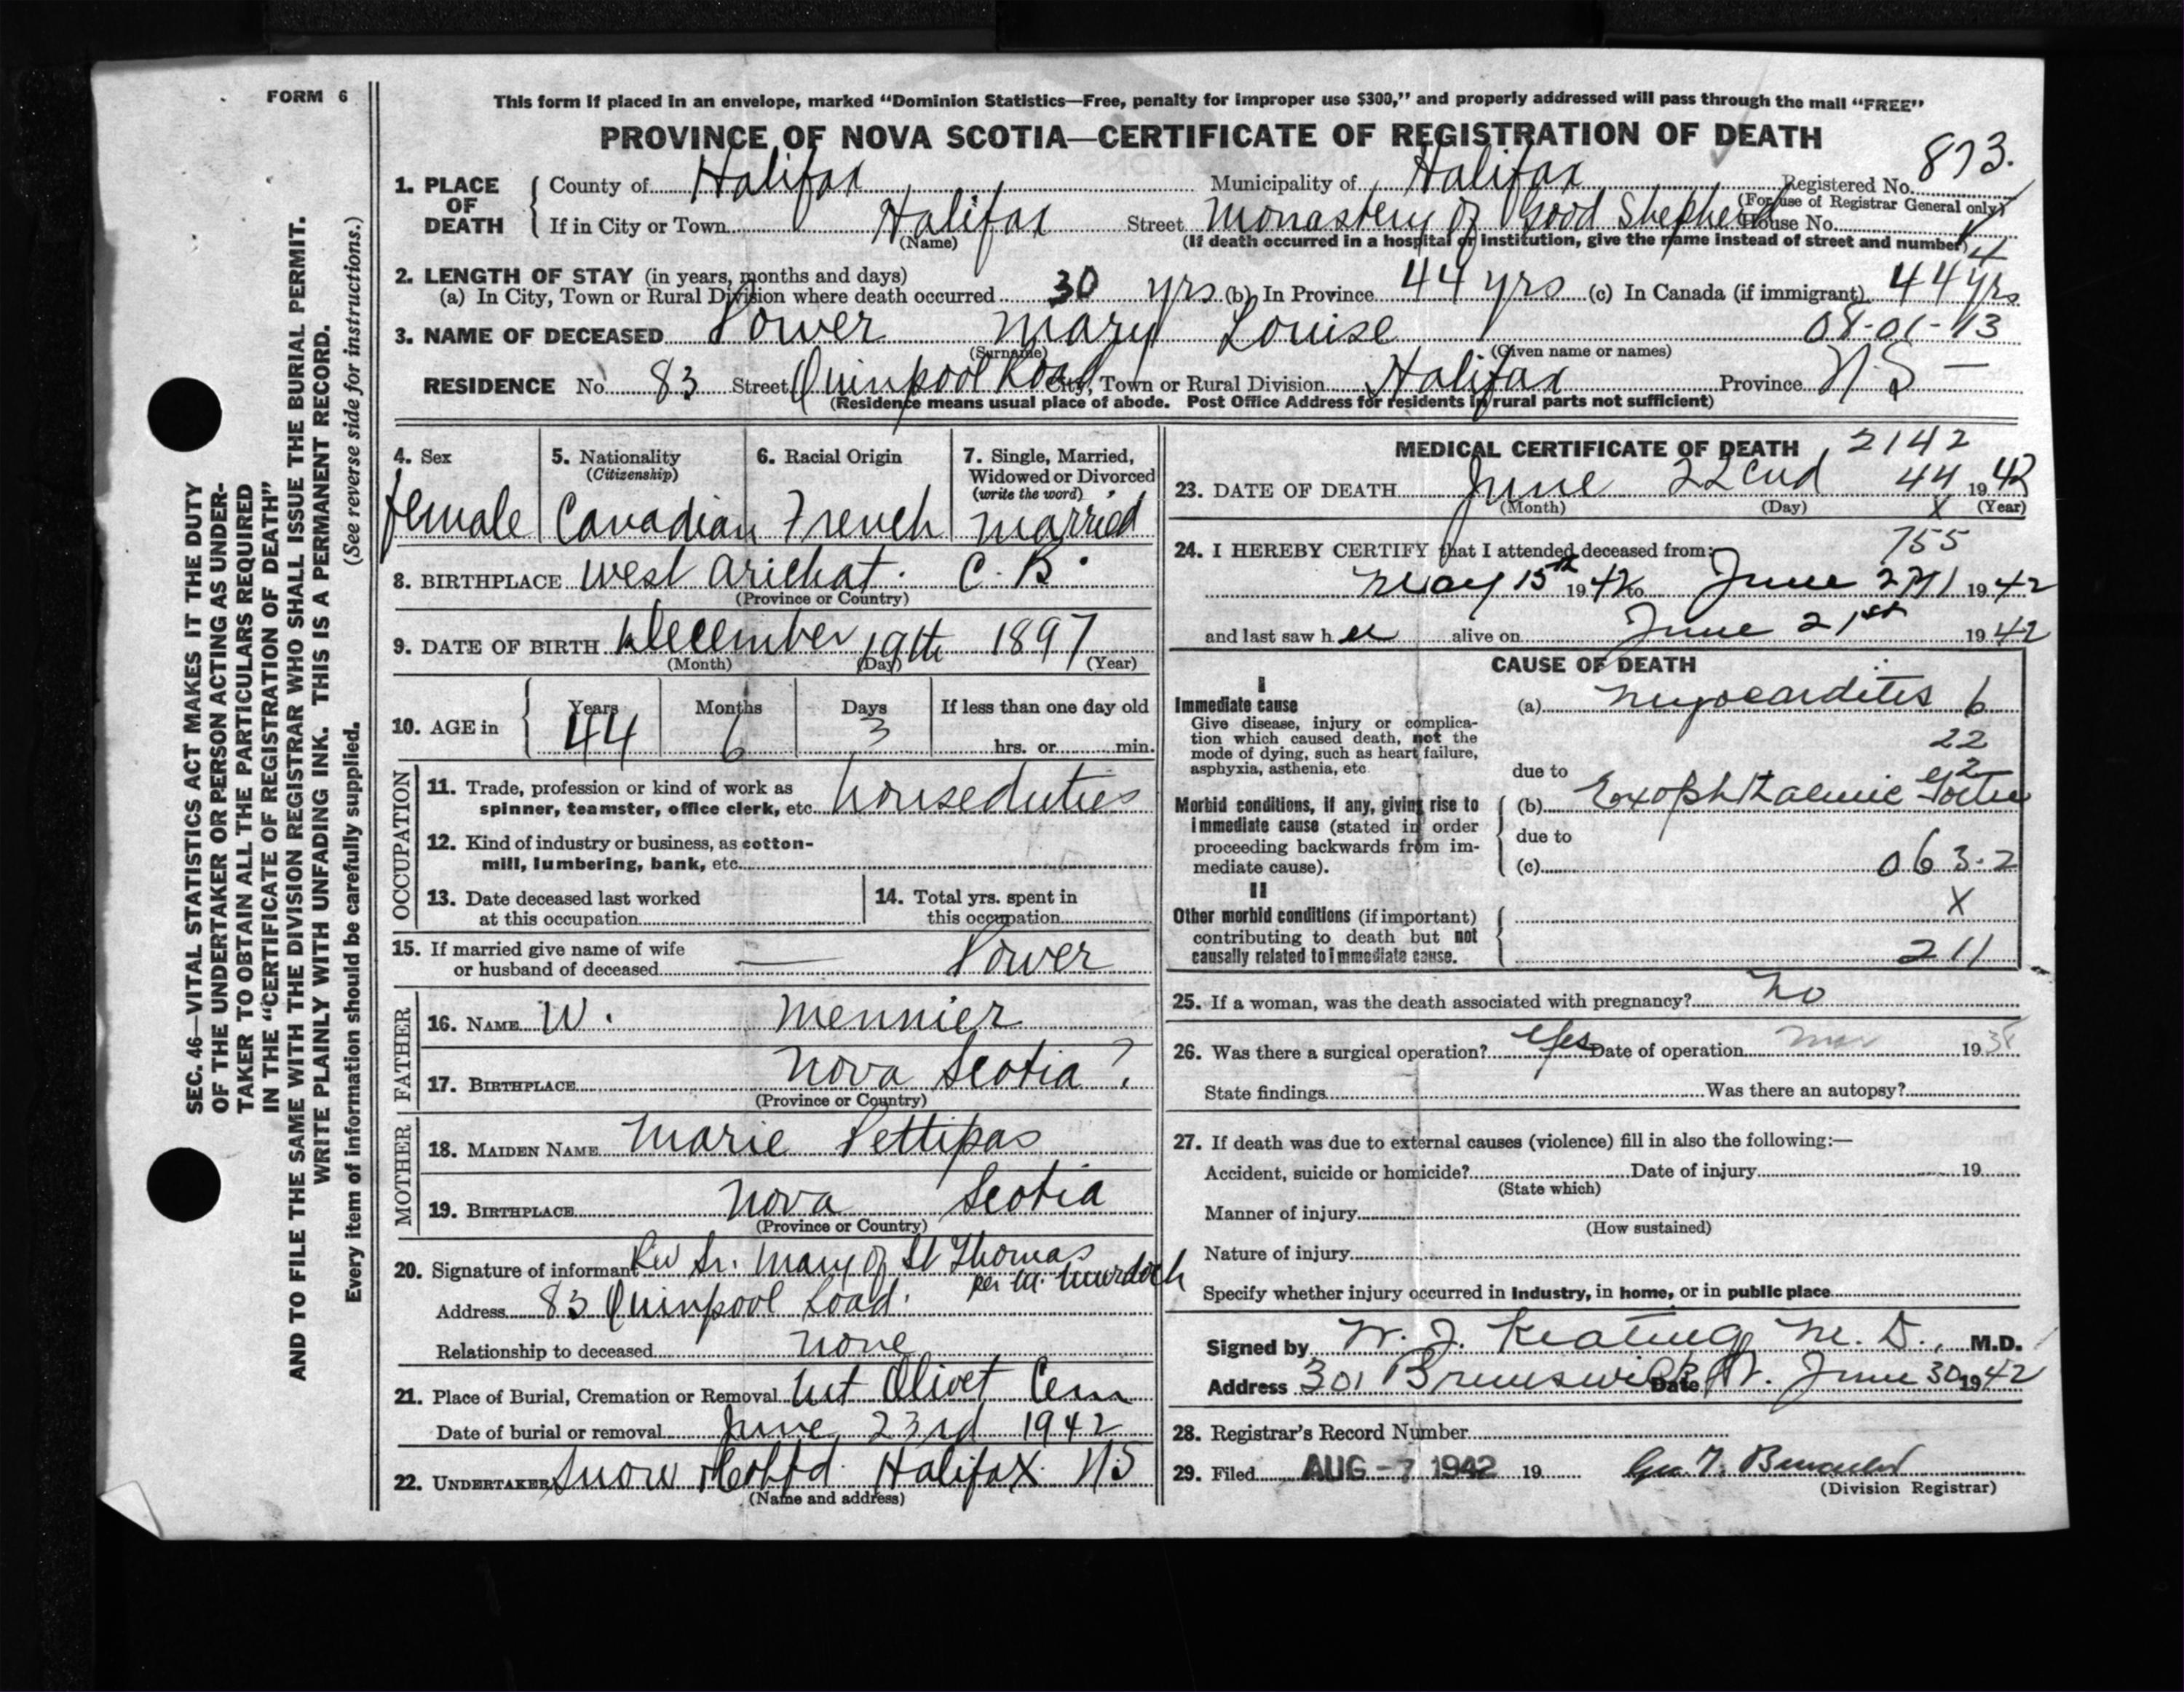 FORM 6
This form if placed in an envelope, marked "Dominion Statistics—Free, penalty for improper use $300," and properly addressed will pass through the mail "FREE"
PROVINCE OF NOVA SCOTIA—CERTIFICATE OF REGISTRATION OF DEATH
873.
1. PLACE OF DEATH
County of Halifax Municipality of Halifax Registered No.
(For use of Registrar General only)
If in City or Town Halifax Street Monastery of Good Shepherd House No.
(Name) (If death occurred in a hospital or institution, give the name instead of street and number)
4
2. LENGTH OF STAY (in years, months and days)
(a) In City, Town or Rural Division where death occurred 30 yrs (b) In Province 44 yrs (c) In Canada (if immigrant) 44 yrs
3. NAME OF DECEASED Power Mary Louise 08-01-13
(Surname) (Given name or names)
RESIDENCE No. 83 Street Quinpool Road City, Town or Rural Division Halifax Province N.S —
(Residence means usual place of abode. Post Office Address for residents in rural parts not sufficient)
4. Sex
female
5. Nationality
(Citizenship)
Canadian
6. Racial Origin
French
7. Single, Married,
Widowed or Divorced
(write the word)
married
8. BIRTHPLACE West Arichat. C. B.
(Province or Country)
9. DATE OF BIRTH December 19th 1897
(Month) (Day) (Year)
10. AGE in
Years Months Days If less than one day old
44 6 3 hrs. or min.
OCCUPATION
11. Trade, profession or kind of work as
spinner, teamster, office clerk, etc. houseduties
12. Kind of industry or business, as cotton-
mill, lumbering, bank, etc.
13. Date deceased last worked
at this occupation
14. Total yrs. spent in
this occupation
15. If married give name of wife
or husband of deceased — Power
FATHER
16. NAME W. Mennier
17. BIRTHPLACE Nova Scotia?
(Province or Country)
MOTHER
18. MAIDEN NAME Marie Pettipas
19. BIRTHPLACE Nova Scotia
(Province or Country)
20. Signature of informant Rev Sr. Mary of St Thomas
per M. Murdoch
Address 83 Quinpool Road.
Relationship to deceased none
21. Place of Burial, Cremation or Removal Mt Olivet Cem
Date of burial or removal June 23rd 1942
22. UNDERTAKER Snow & Co Ltd. Halifax N S
(Name and address)
MEDICAL CERTIFICATE OF DEATH 2142
23. DATE OF DEATH June 22nd 44 1942
(Month) (Day) X (Year)
24. I HEREBY CERTIFY that I attended deceased from: 755
May 15th 1942 to June 1942
and last saw her alive on June 21st 1942
CAUSE OF DEATH
I
Immediate cause
Give disease, injury or complica-
tion which caused death, not the
mode of dying, such as heart failure,
asphyxia, asthenia, etc.
(a) Myocarditis 6
22
2
due to
Morbid conditions, if any, giving rise to
immediate cause (stated in order
proceeding backwards from im-
mediate cause).
(b) Exophthalmic Goitre
due to
(c) 063-2
II
Other morbid conditions (if important)
contributing to death but not
causally related to immediate cause.
X
211
25. If a woman, was the death associated with pregnancy? No
26. Was there a surgical operation? Yes Date of operation Mar 1938
State findings Was there an autopsy?
27. If death was due to external causes (violence) fill in also the following:—
Accident, suicide or homicide? Date of injury 19
(State which)
Manner of injury
(How sustained)
Nature of injury
Specify whether injury occurred in Industry, in home, or in public place
Signed by W. J. Keating M. D., M.D.
Address 301 Brunswick St. Date June 30 1942
28. Registrar's Record Number
29. Filed AUG -7 1942 19
(Division Registrar)
SEC. 46—VITAL STATISTICS ACT MAKES IT THE DUTY
OF THE UNDERTAKER OR PERSON ACTING AS UNDER-
TAKER TO OBTAIN ALL THE PARTICULARS REQUIRED
IN THE "CERTIFICATE OF REGISTRATION OF DEATH"
AND TO FILE THE SAME WITH THE DIVISION REGISTRAR WHO SHALL ISSUE THE BURIAL PERMIT.
WRITE PLAINLY WITH UNFADING INK. THIS IS A PERMANENT RECORD.
Every item of information should be carefully supplied. (See reverse side for instructions.)